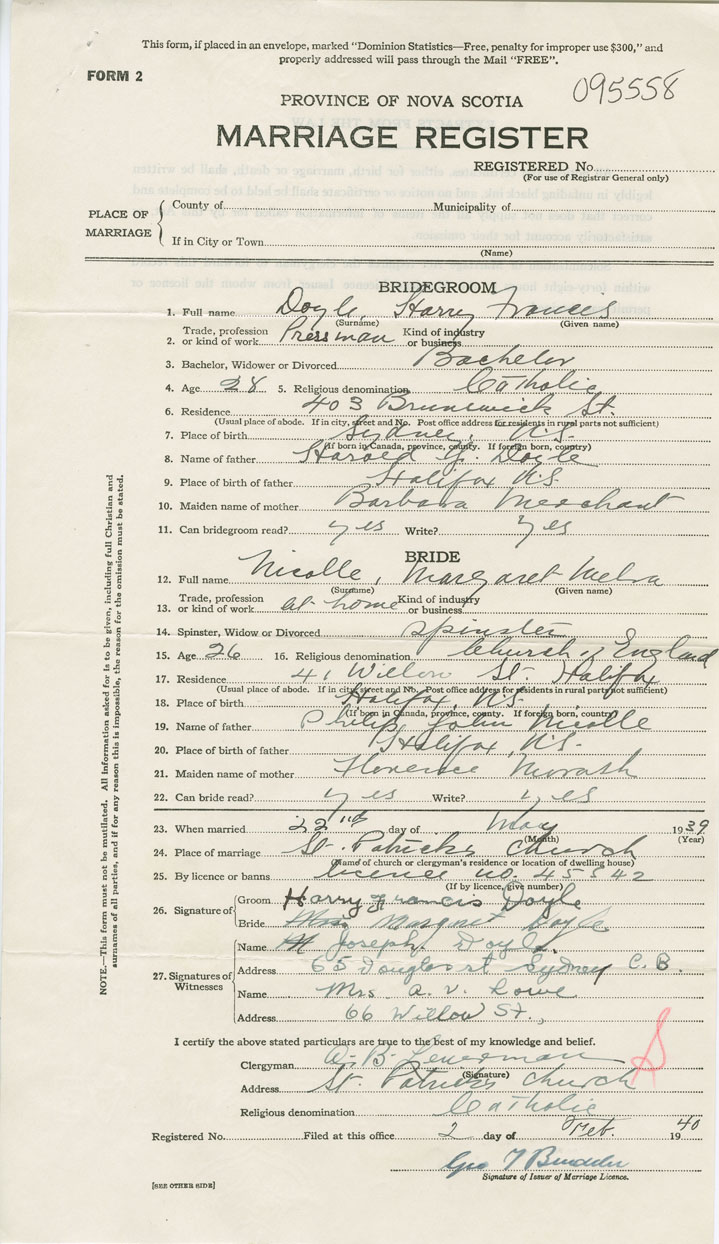 This form, if placed in an envelope, marked "Dominion Statistics—Free, penalty for improper use $300," and
properly addressed will pass through the Mail "FREE".
FORM 2
095558
PROVINCE OF NOVA SCOTIA
MARRIAGE REGISTER
REGISTERED No.
(For use of Registrar General only)
PLACE OF MARRIAGE
County of
Municipality of
If in City or Town
(Name)
BRIDEGROOM
1. Full name Doyle, Harry Frances
(Surname) (Given name)
2. Trade, profession or kind of work Pressman Kind of industry or business
3. Bachelor, Widower or Divorced Bachelor
4. Age 28 5. Religious denomination Catholic
6. Residence 403 Brunswick St.
(Usual place of abode. If in city, street and No. Post office address for residents in rural parts not sufficient)
7. Place of birth Sydney, N.S.
(If born in Canada, province, county. If foreign born, country)
8. Name of father Harold Doyle
9. Place of birth of father Halifax N.S.
10. Maiden name of mother Barbara Merchant
11. Can bridegroom read? yes Write? yes
BRIDE
12. Full name Nicolle, Margaret Melva
(Surname) (Given name)
13. Trade, profession or kind of work at home Kind of industry or business
14. Spinster, Widow or Divorced spinster
15. Age 26 16. Religious denomination Church of England
17. Residence 41 Willow St. Halifax
(Usual place of abode. If in city, street and No. Post office address for residents in rural parts not sufficient)
18. Place of birth Halifax, N.S.
(If born in Canada, province, county. If foreign born, country)
19. Name of father Philip John Nicolle
20. Place of birth of father Halifax, N.S.
21. Maiden name of mother Florence Morash
22. Can bride read? yes Write? yes
23. When married 22nd day of May 1939
(Month) (Year)
24. Place of marriage St. Patricks Church
(Name of church or clergyman's residence or location of dwelling house)
25. By licence or banns licence no. 45842
(If by licence, give number)
26. Signature of
Groom Harry Francis Doyle
Bride Mrs Margaret Doyle
27. Signatures of Witnesses
Name Joseph Doyle
Address 65 Douglas st Sydney C.B.
Name Mrs A. V. Rowe
Address 66 Willow St.,
I certify the above stated particulars are true to the best of my knowledge and belief.
Clergyman A. B.
(Signature)
Address St. Patricks Church
Religious denomination Catholic
Registered No. Filed at this office 2 day of Feb. 1940
Geo
Signature of Issuer of Marriage Licence.
[SEE OTHER SIDE]
NOTE.—This form must not be mutilated. All information asked for is to be given, including full Christian and
surnames of all parties, and if for any reason this is impossible, the reason for the omission must be stated.